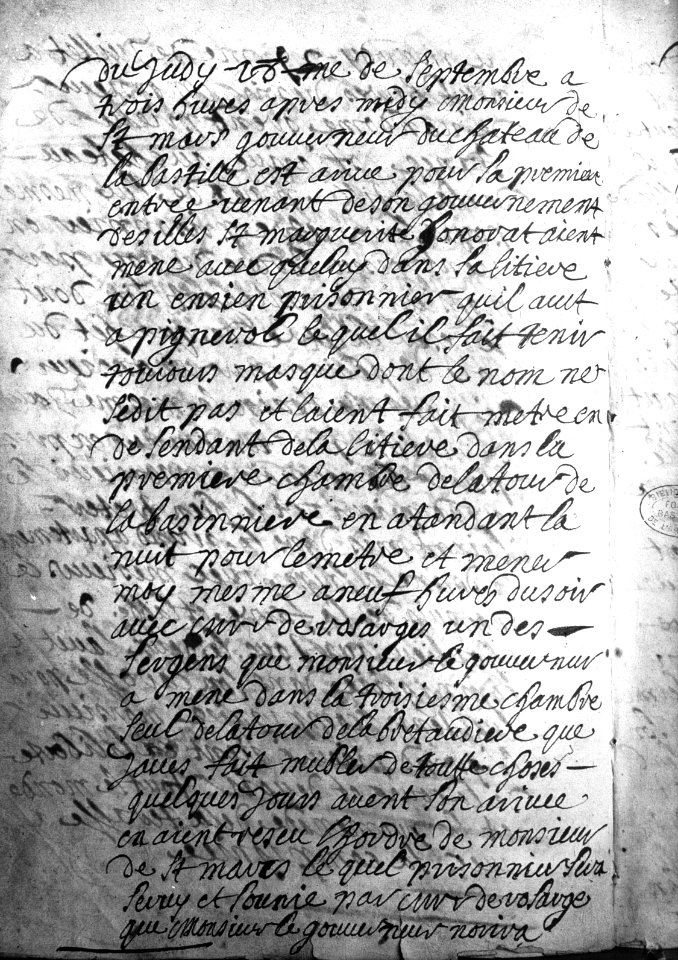 du Judy 18me de Septembre a
trois hures apres midy Monsieur de
St mars gouverneur du chateau de
la bastille est arive pour sa premiere
entree venant de son gouvernement
des illes St marguerite honorat aient
mene avec
dans sa litiere
un ensien prisonnier quil avet
a pignerol lequel il fait tenir
toujours masque dont le nom ne
se dit pas et laient fait metre en
desendant de la litiere dans la
premiere chambre de la tour de
la basinniere en atandant la
nuit pour le metre et mener
moy mesme a neuf hures du soir
avec de rosarges un des
sergens que monsieur le gouverneur
a mene dans la troisiesme chambre
seul de la tour de la bretaudiere que
javes fait mubler de toutte choses
quelques jours avent son arivee
en aient reseu lhordre de monsieur
de St mars lequel prisonnier sera
servy et sounie par de rosarge
que Monsieur le gouverneur norira